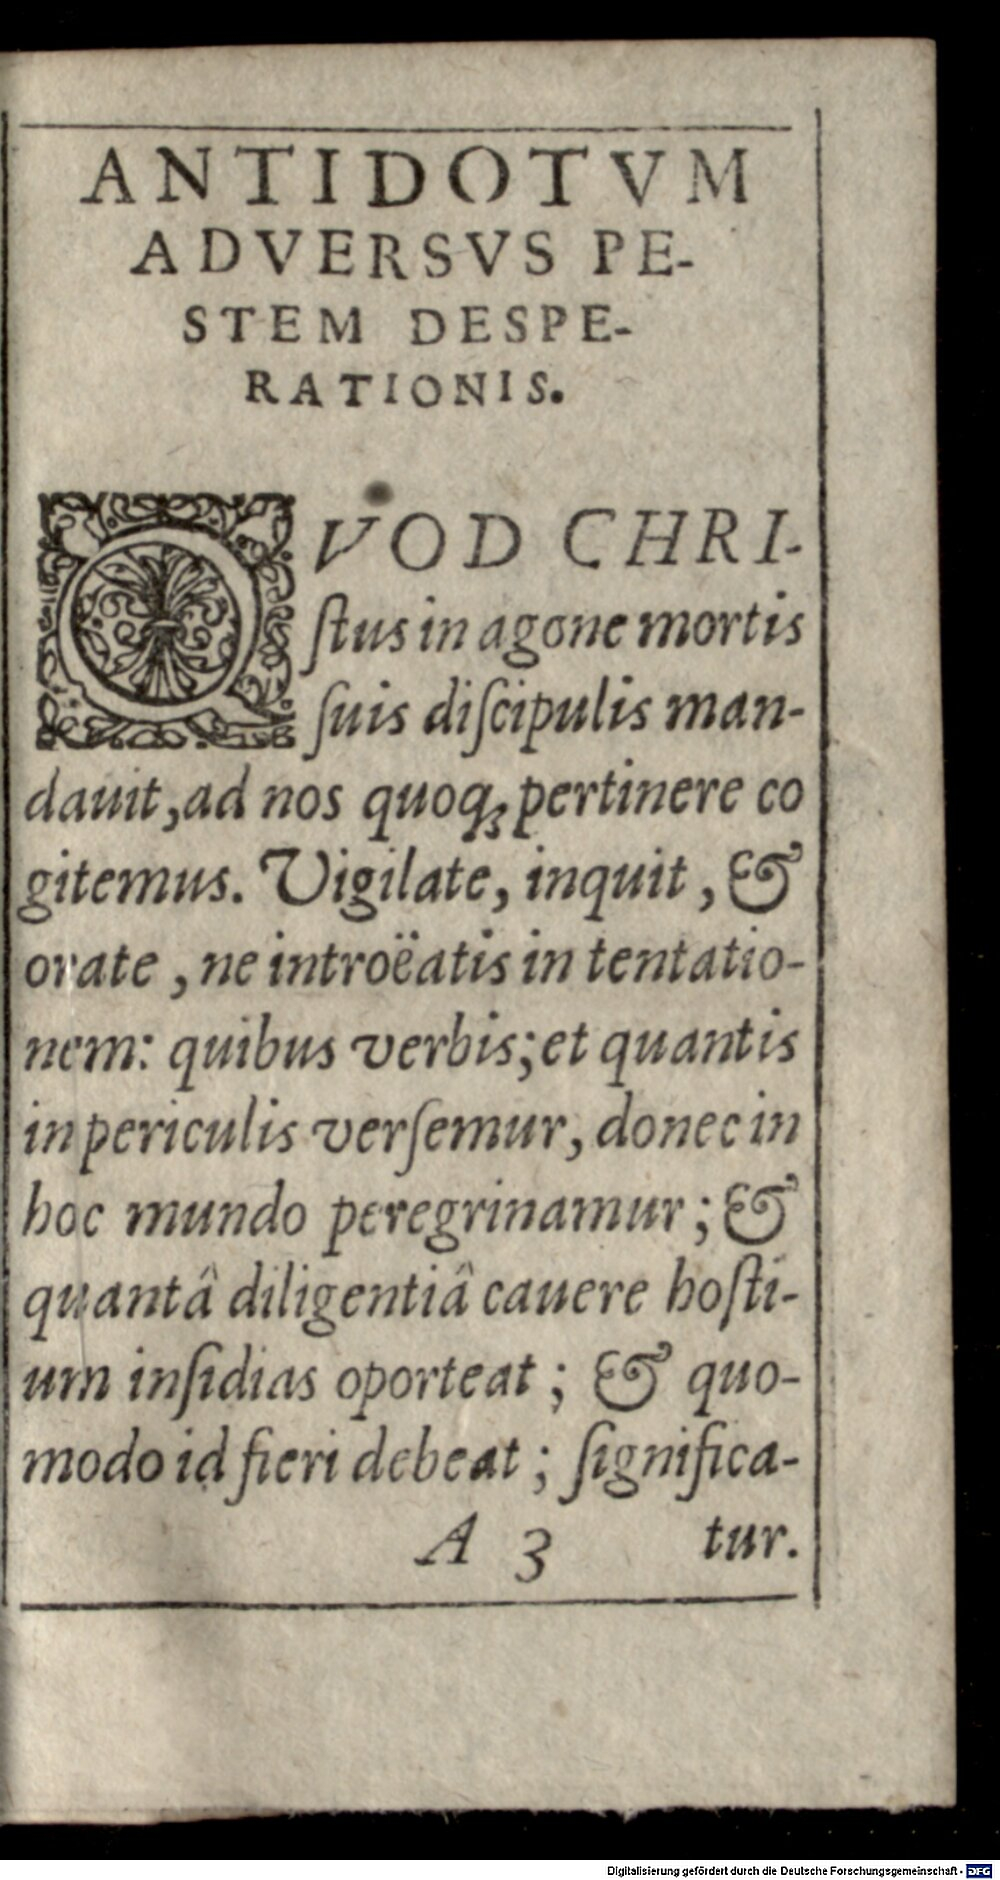 ANTIDOTVM
ADVERSVS PE-
STEM DESPE-
RATIONIS.
QVOD CHRI-
ſtus in agone mortis
ſuis diſcipulis man-
dauit, ad nos quoq; pertinere co
gitemus. Vigilate, inquit, &
orate, ne introëatis in tentatio-
nem: quibus verbis; et quantis
in periculis verſemur, donec in
hoc mundo peregrinamur; &
quantâ diligentiâ cauere hoſti-
um inſidias oporteat; & quo-
modo id fieri debeat; ſignifica-
A 3 tur.
Digitalisierung gefördert durch die Deutsche Forschungsgemeinschaft - DFG